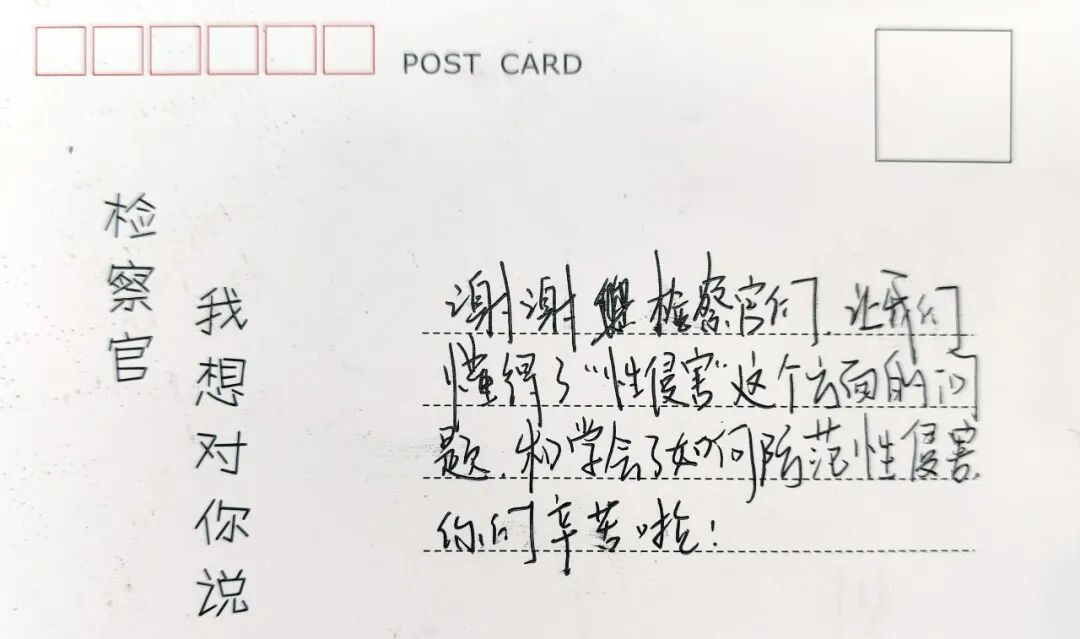 POST CARD
检察官
我想对你说
谢谢检察官们，让我们
懂得了“性侵害”这个方面的问
题，和学会了如何防范性侵害，
你们辛苦啦！